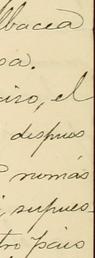 lbacea
sa.
el
despues
numás
supues-
tro pais